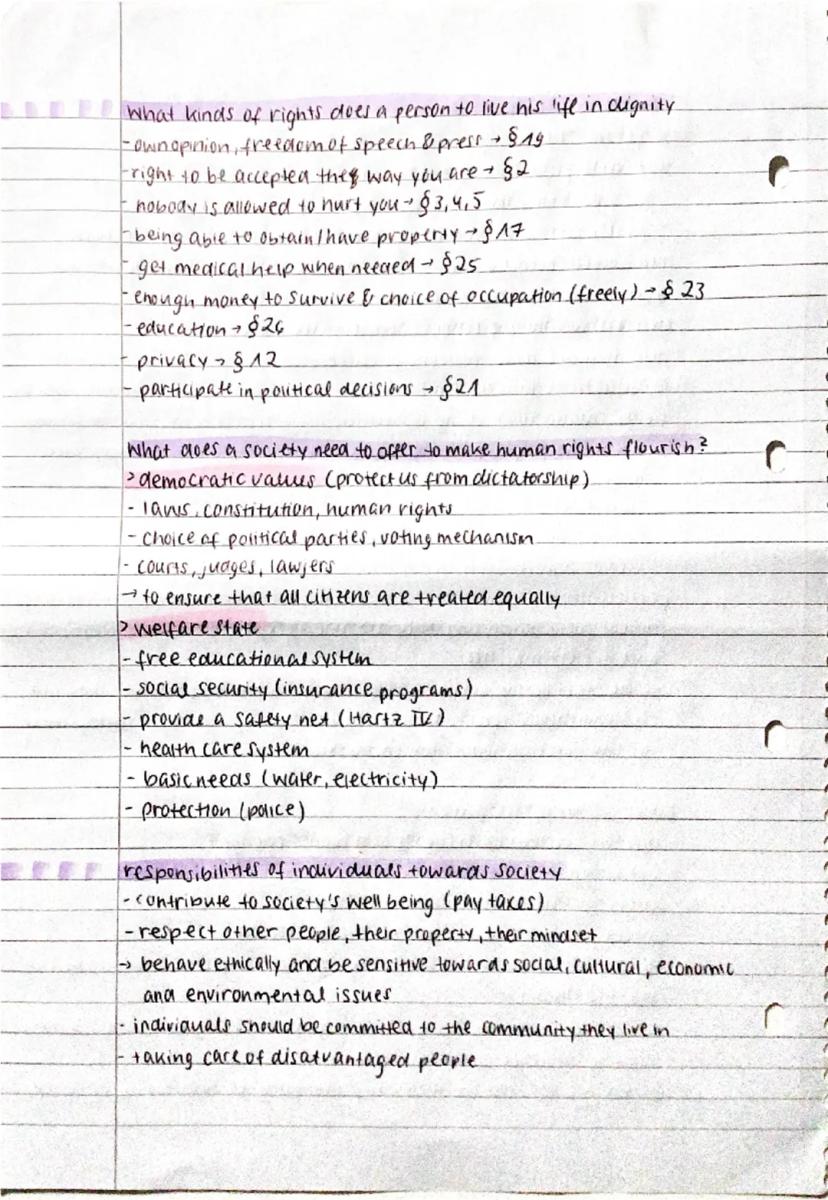 What kinds of rights does a person to live his life in dignity
- own opinion, freedom of speech & press → §19
- right to be accepted the way you are → §2
- nobody is allowed to hurt you → §3,4,5
- being able to obtain/have property → §17
- get medical help when needed → §25
- enough money to survive & choice of occupation (freely) → §23
- education → §26
- privacy → §12
- participate in political decisions → §21
What does a society need to offer to make human rights flourish?
> democratic values (protect us from dictatorship)
- laws, constitution, human rights
- choice of political parties, voting mechanism
- courts, judges, lawjers
→ to ensure that all citizens are treated equally
> welfare state
- free educational system
- social security (insurance programs)
- provide a safety net (Hartz IV)
- health care system
- basic needs (water, electricity)
- protection (police)
responsibilities of individuals towards society
- contribute to society's well being (pay taxes)
- respect other people, their property, their mindset
→ behave ethically and be sensitive towards social, cultural, economic
and environmental issues
- individuals should be committed to the community they live in
- taking care of disatvantaged people